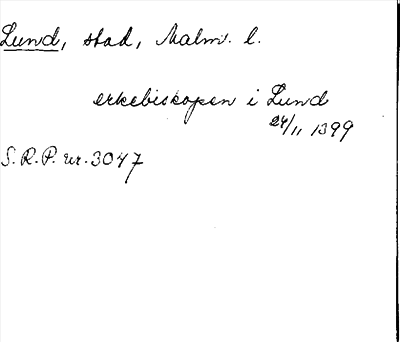 Lund, stad, Malm. l.
erkebiskopen i Lund
24/11 1399
S.R.P. nr. 3047